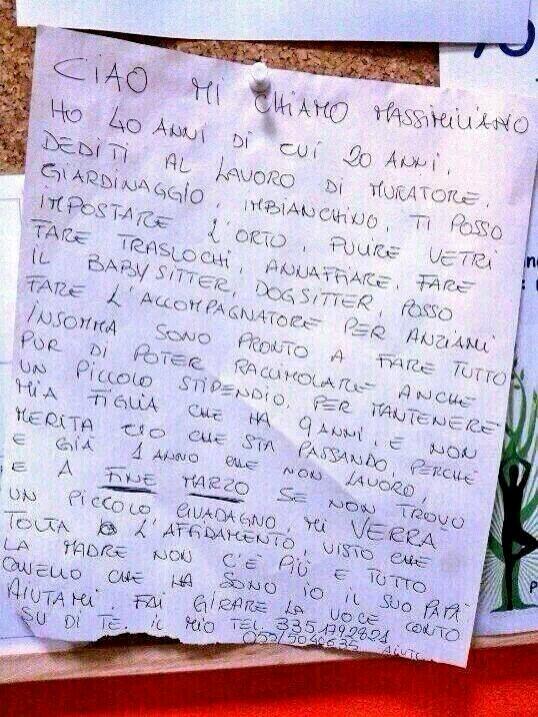 CIAO MI CHIAMO MASSIMILIANO
HO 40 ANNI DI CUI 20 ANNI,
DEDITI AL LAVORO DI MURATORE,
GIARDINAGGIO, IMBIANCHINO, TI POSSO
IMPOSTARE L'ORTO, PULIRE VETRI
FARE TRASLOCHI, ANNAFFIARE, FARE
IL BABY SITTER, DOGSITTER, POSSO
FARE L'ACCOMPAGNATORE PER ANZIANI
INSOMMA SONO PRONTO A FARE TUTTO
PUR DI POTER RACIMOLARE ANCHE
UN PICCOLO STIPENDIO, PER MANTENERE
MIA FIGLIA CHE HA 9 ANNI, E NON
MERITA CIÒ CHE STA PASSANDO, PERCHÉ
E GIÀ 1 ANNO CHE NON LAVORO,
E A FINE MARZO SE NON TROVO
UN PICCOLO GUADAGNO, MI VERRA
TOLTA L'AFFIDAMENTO, VISTO CHE
LA MADRE NON C'È PIÙ E TUTTO
QUELLO CHE HA SONO IO IL SUO PAPÀ
AIUTAMI, FAI GIRARE LA VOCE CONTO
SU DI TE. IL MIO TEL. 335